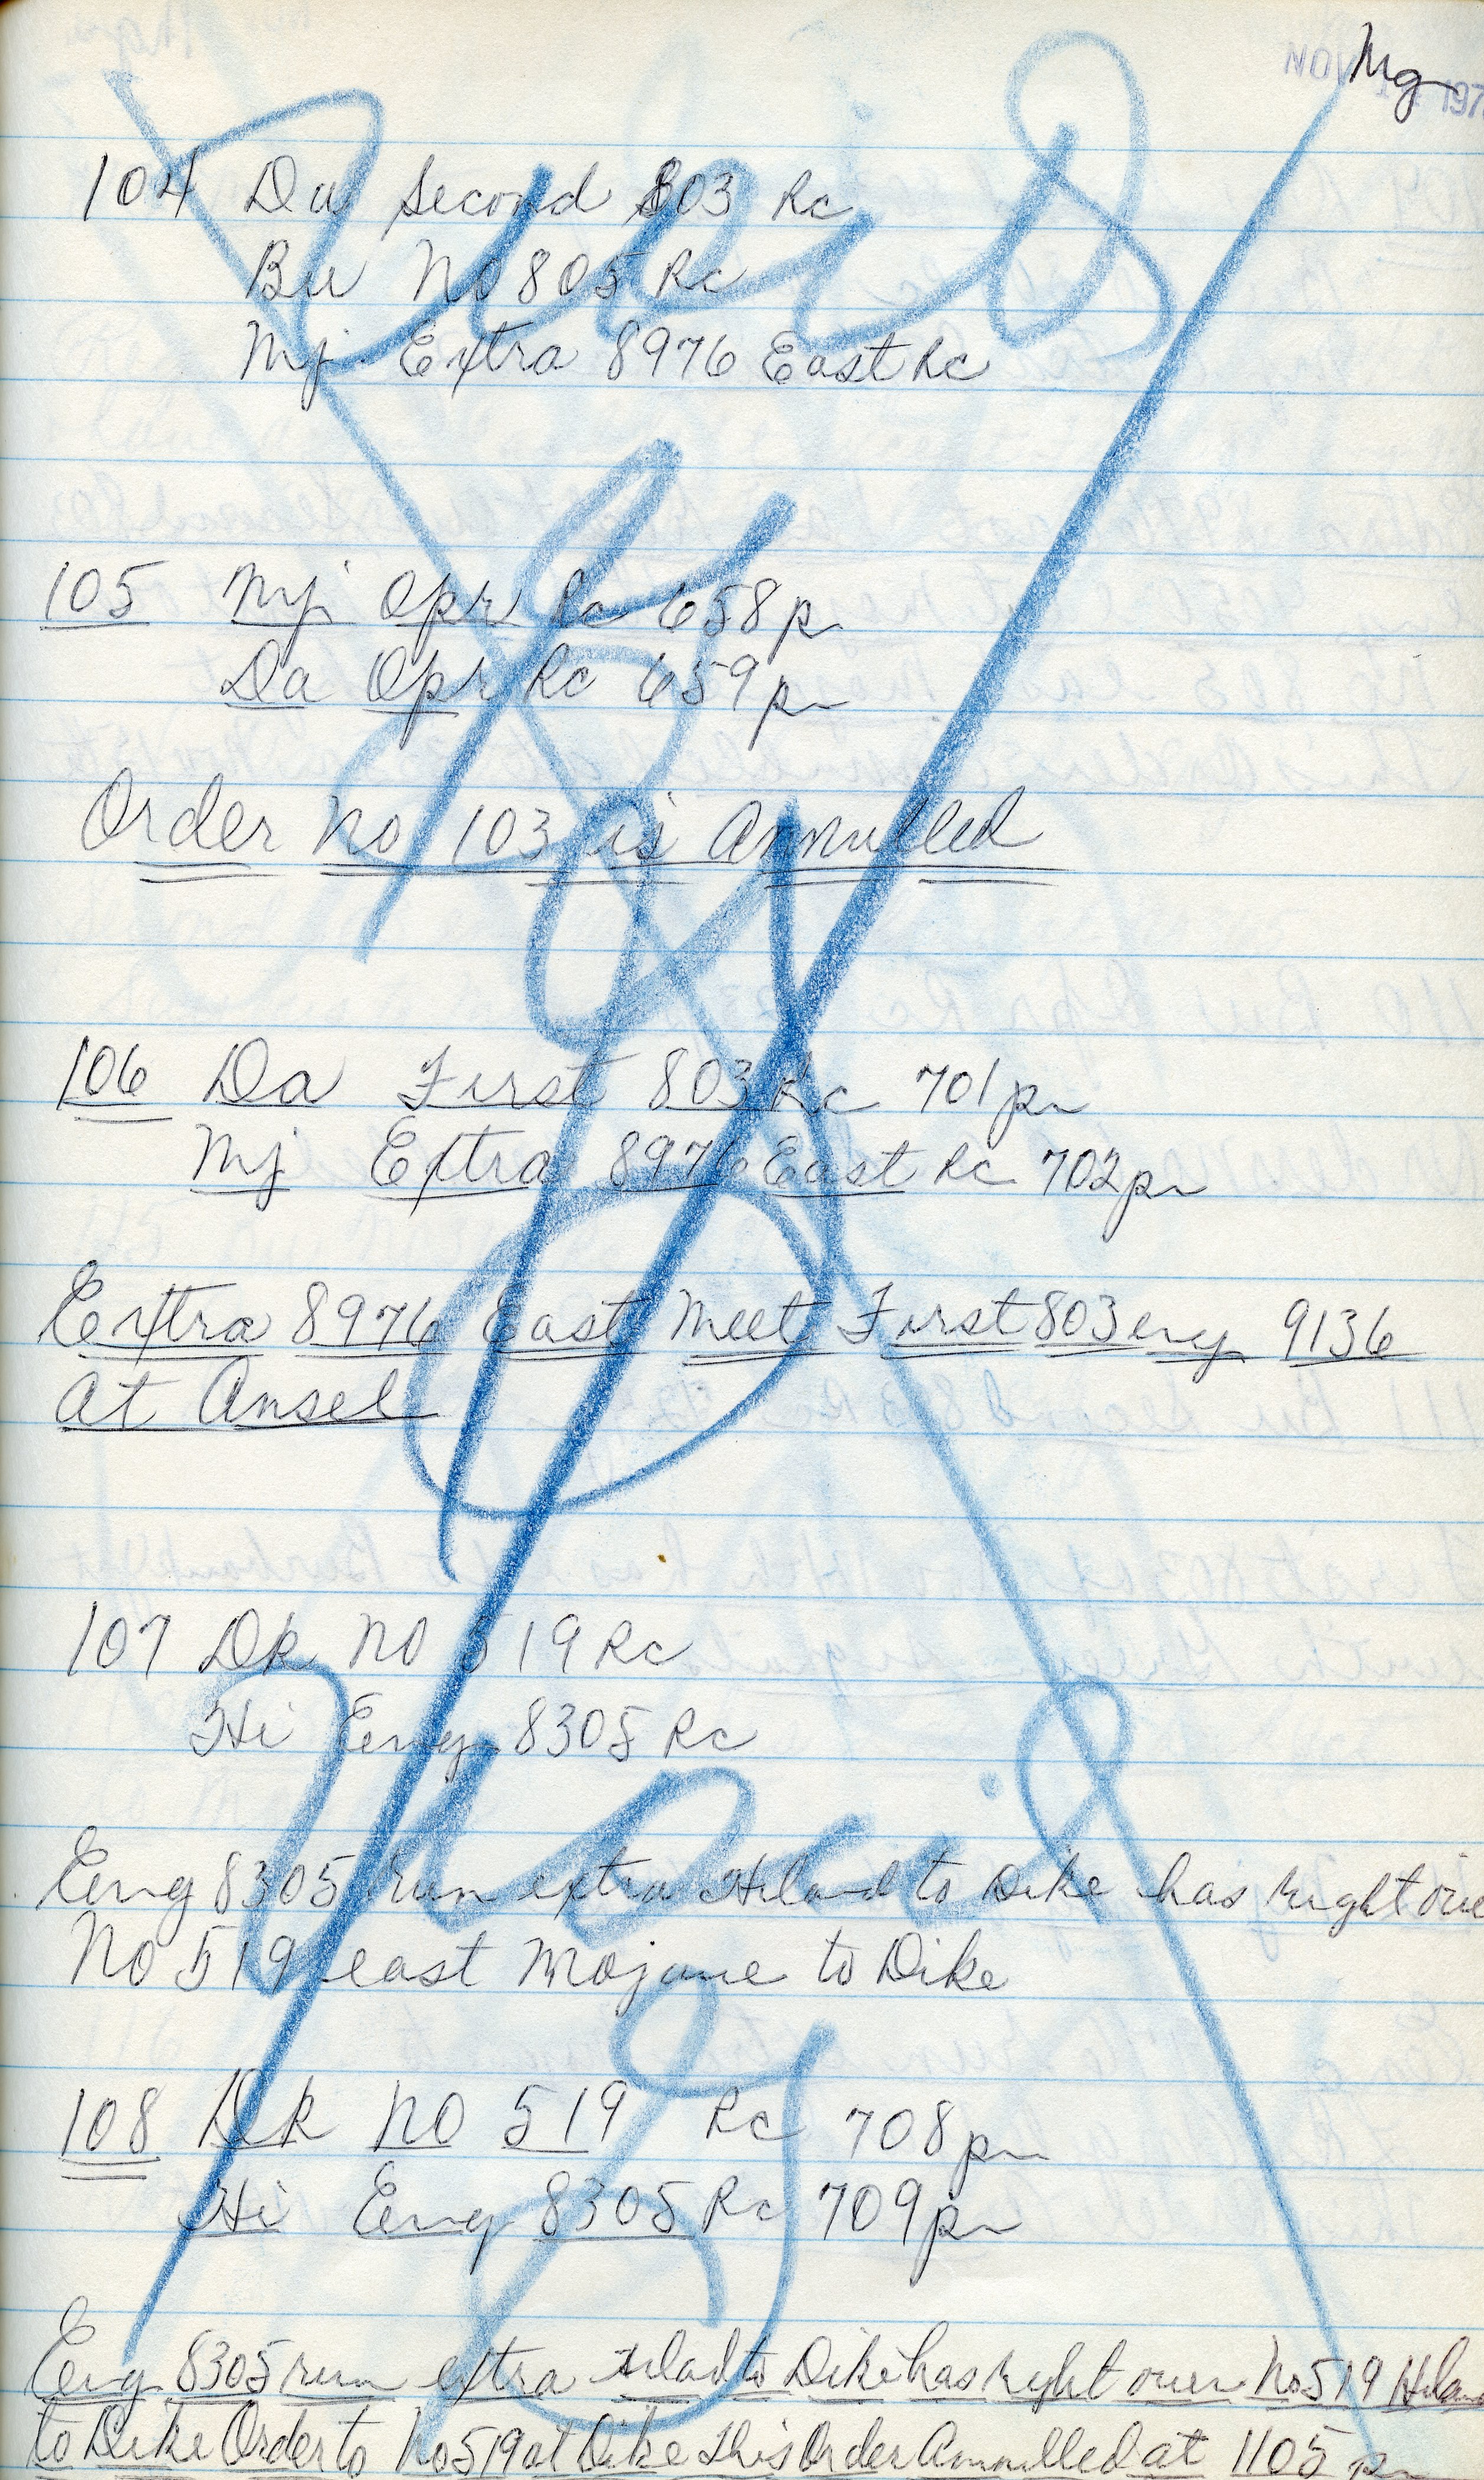 NOV 197
Mg
104 Da Second 803 Rc
Bu No 805 Rc
Mj Extra 8976 East Rc
105 Mj Opr Rc 658 pm
Da Opr Rc 659 pm
Order No 103 is Annulled
106 Da First 803 Rc 701 pm
Mj Extra 8976 East Rc 702 pm
Extra 8976 East Meet First 803 eng 9136
at Ansel
107 Dk No 519 Rc
Hi Eng 8305 Rc
Eng 8305 run extra Hiland to Dike has right over
No 519 east Mojave to Dike
108 Dk No 519 Rc 708 pm
Hi Eng 8305 Rc 709 pm
Eng 8305 run extra Hilad to Dike has right over No 519 Hilan
to Dike Order to No 519 at Dike This Order Annulled at 1105 pm